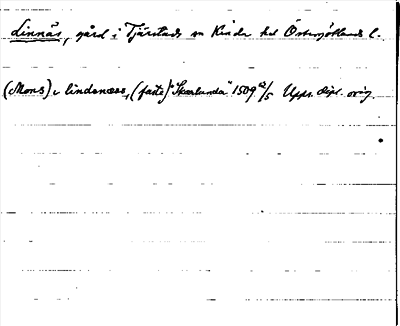 Linnäs, gård i Tjärstads sn Kinda hd Östergötlands l.
(Mons) i lindenæss, (faste) "Skærlunda" 1509 23/5 Upps. dipl. orig.